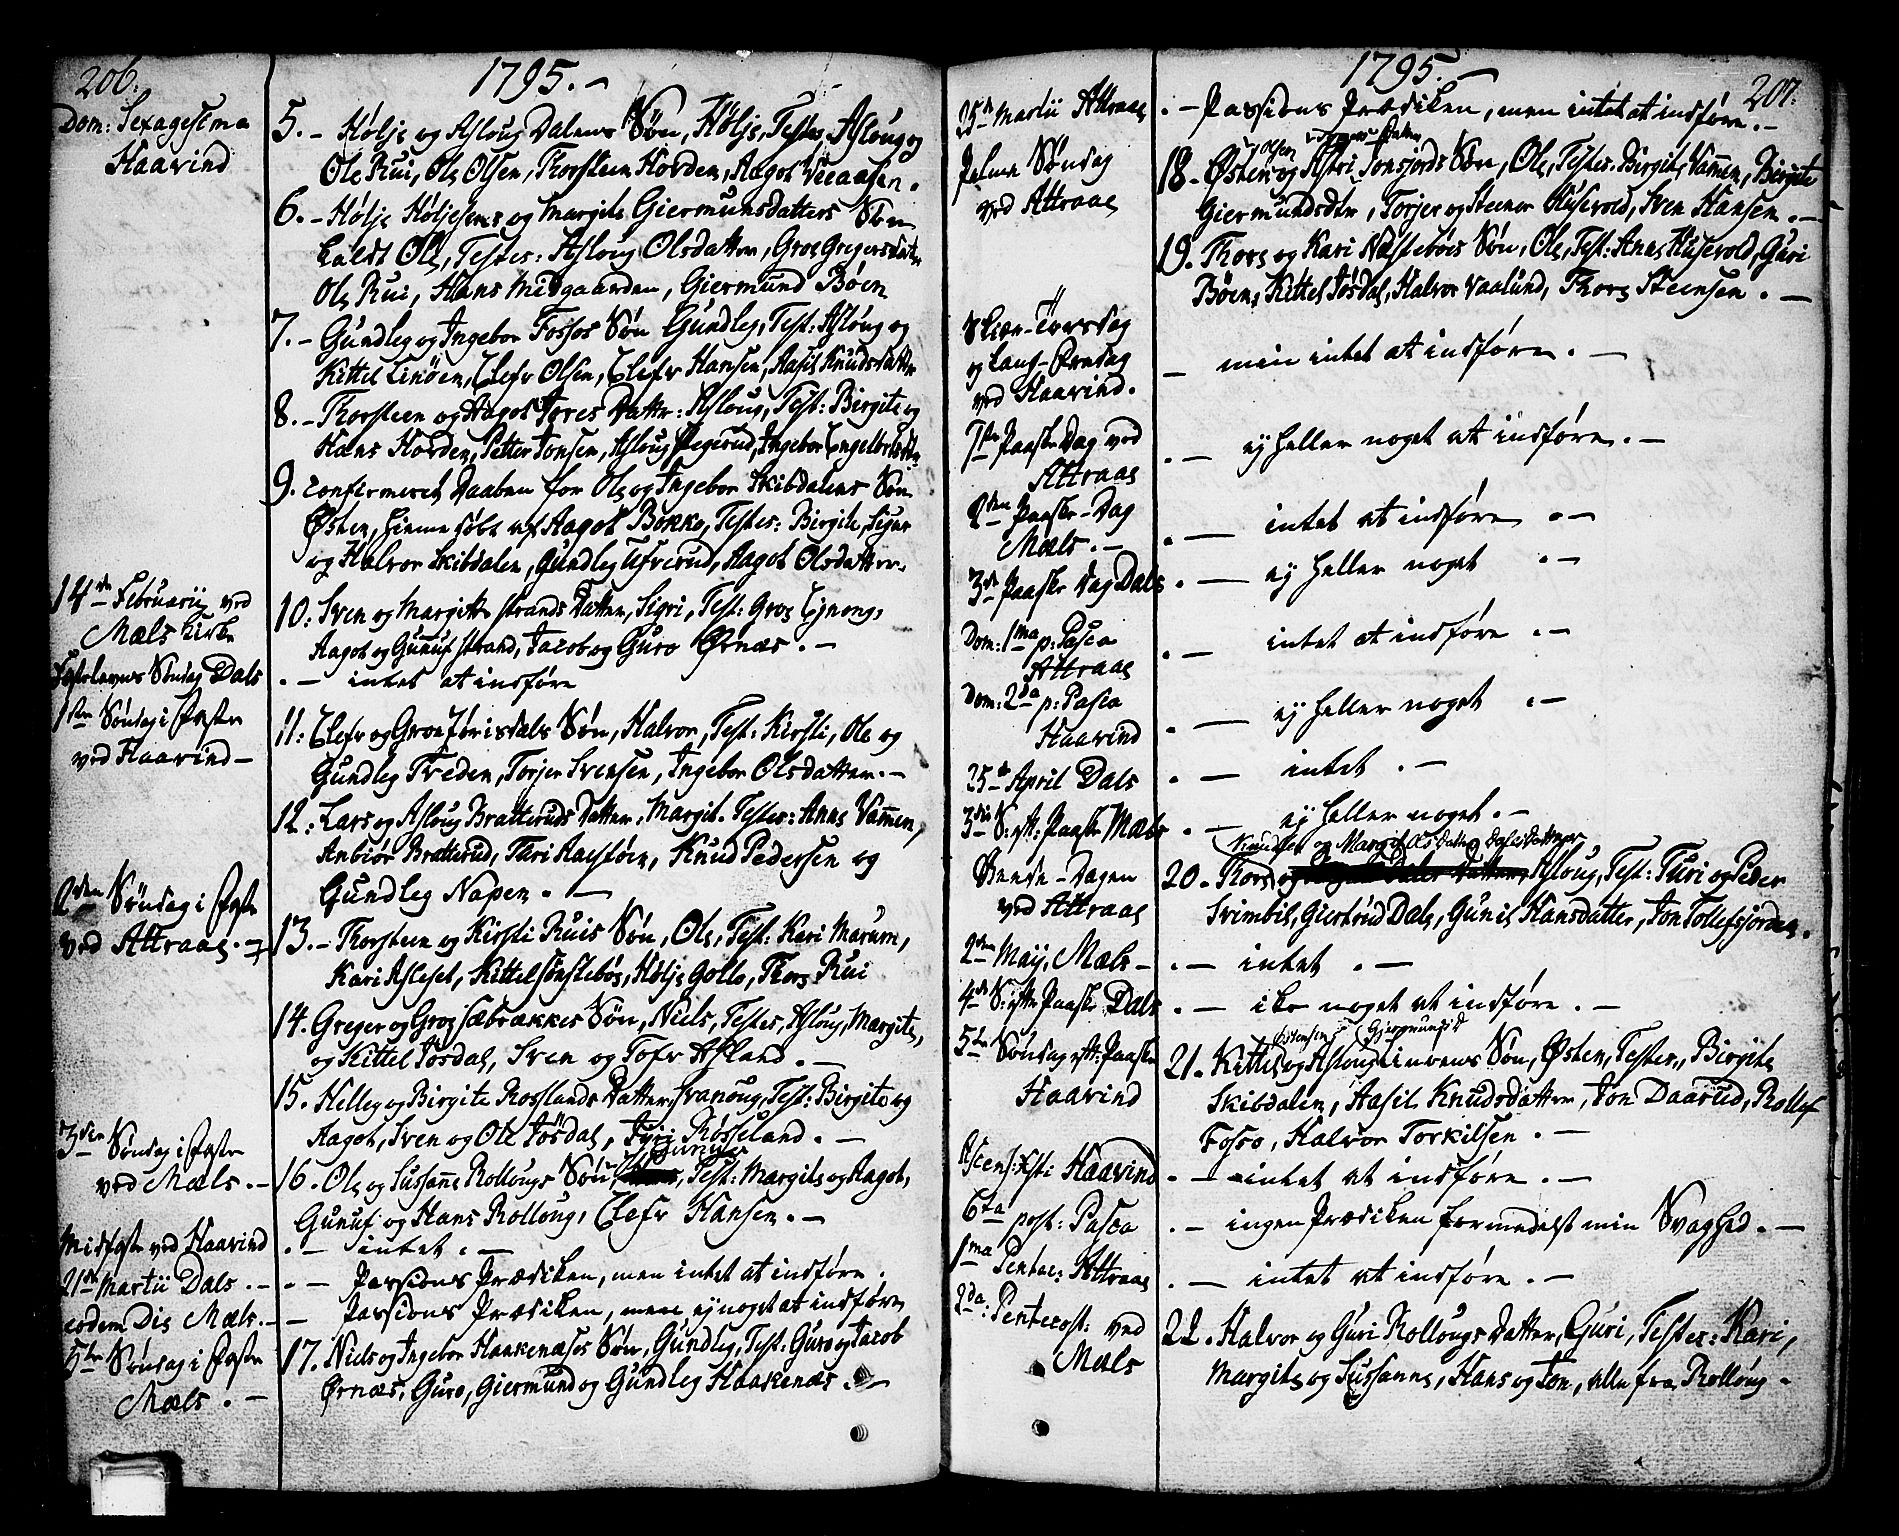 206.
1795.-
Dom: Sexagesima
Haavind
5. - Hølje og Asloug Dalens Søn, Hølje, Testes Asloug og
Ole Rui, Ole Olsen, Thorsteen Norden, Aagot Veeaasen.
6. - Hølje Høljesens og Margite Giermunsdatters Søn
kaldt Ole, Testes: Asloug Olsdatter, Groe Gregersdatter
Ole Rui, Hans Midgaarden, Giermund Bøen
7. - Gundleg og Ingebor Fossos Søn Gundleg, Test: Asloug og
Kittel Linöen, Elefr Olsen, Elefr Hansen, Aasil Knudsdatter
8. - Thorsteen og Aagot Tores Datter: Asloug, Test: Birgite og
Hans Norden, Petter Jonsen, Asloug Ingebor
9. confirmeret Daaben for Ole og Ingebor Skibdalens Søn
Østen, hiemmedøbt af Aagot Bokko, Testes: Birgite, Sigur
og Halvor Skibdalen, Gundleg Ufverud, Aagot Olsdatter.
14de Februarij ved
Mæls Kirke
10: Sven og Margitte Strands Datter, Sigri, Test: Groe
Aagot og Gunuf Strand, Jacob og Guro Ørnæs. -
Fastelavns Søndag Dals
. - intet at indføre
1ste Søndag i Faste
ved Haavind -
11: Elefr og Groe Jørisdals Søn, Halvor, Test: Kirsti, Ole og
Gundleg Treden, Torjer Svensen, Ingebor Olsdatter. -
12: Lars og Asloug Bratteruds Datter, Margit. Testes: Anne Vammen,
Anbiør Bratterud, Tari Knud Pedersen og
Gundleg Napen. -
2den Søndag i Faste
ved Attraae. -
13. - Thorsteen og Kirsti Ruis Søn, Ole, Test: Kari Marum,
Kari Kittel Hølje Gollo, Thore Rui
14. Greger og Groe Sæbrækkes Søn, Niels, Testes, Asloug, Margite,
og Kittel Jøsdal, Sven og Tofr Asland. -
15. Helleg og Birgite Rosslands Datter, Svanoug, Test: Birgite og
Aagot, Sven og Ole Jøsdal, Rosseland. -
3den Søndag i Faste
ved Mæls. -
16. Ole og Sussanne Rollougs Søn, Test: Margite og Aagot,
Gunuf og Hans Rolloug, Elefr Hansen. -
Midfaste ved Haavind
. - intet. -
21de Martii Dals. -
. - Passions Prædiken, men intet at indføre.
eodem Die Mæls. -
Passions Prædiken, men ej noget at indføre
5te Søndag i Faste
Mæls. -
17. Niels og Ingebor Haakenæses Søn, Gundleg, Test: Guro og Jacob
Ørnæs, Guro, Giermund og Gundleg Haakenæs. -
1795. -
207.
25de Martii Attraae
. - Passions Prædiken, men intet at indføre. -
Palme Søndag
ved Attraae
Olsen
18. Østen og Astri Jonsjords Søn, Ole, Testes: Birgite Vammen, Birgite
Giermundsdtr, Torjer og Steenar Husevold, Sven Hansen. -
19. Thore og Kari Næstebøes Søn, Ole, Test: Anne Husevold, Guri
Bøen, Kittel Jøsdal, Halvor Vaalund, Thore Steensen. -
Skiær-Torsdag
og Lang-Fredag
ved Haavind.
- men intet at indføre. -
1ste Paaske Dag ved
Attraae
. - ej heller noget at indføre. -
2den Paaske-Dag
Mæls. -
. - intet at indføre. -
3de Paaske Dag Dals
. - ej heller noget. -
Dom: 1ma p: Pasca
Attraae
. - intet at indføre. -
Dom: 2da p: Pasca
Haavind
. - ej heller noget. -
25de April Dals
. - intet. -
3die S: eft: Paaske Mæls
. - ej heller noget. -
Knudsen og Margit Olsdatter Dales Datter
Beede-Dagen
ved Attraae
20. Thore og Asloug, Test: Turi og Peder
Svimbil, Giertrud Dale, Gunil Hansdatter, Jon Tollefsjorden.
2den Maij, Mæls -
. - intet. -
4de S: eft: Paaske Dals
. - ike noget at indføre. -
Østensen Gjermunsd
5te Søndag eft: Paaske
Haavind
21. Kittel og Asloug Søn, Østen, Testes, Birgite
Skibdalen, Aasil Knudsdatter, Jon Daarud, Rollef
Fosso, Halvor Torkilsen. -
Ascens: Xsti Haavind
. - intet at indføre. -
6ta post: Pasca
. - ingen Prædiken formedelst min Svaghed. -
1ma Pentec: Attraae
. - intet at indføre. -
2da: Pentecost: ved
Mæls
22. Halvor og Guri Rollougs Datter, Guri, Testes: Kari,
Margite og Sussanne, Hans og Jon, alle fra Rolloug -